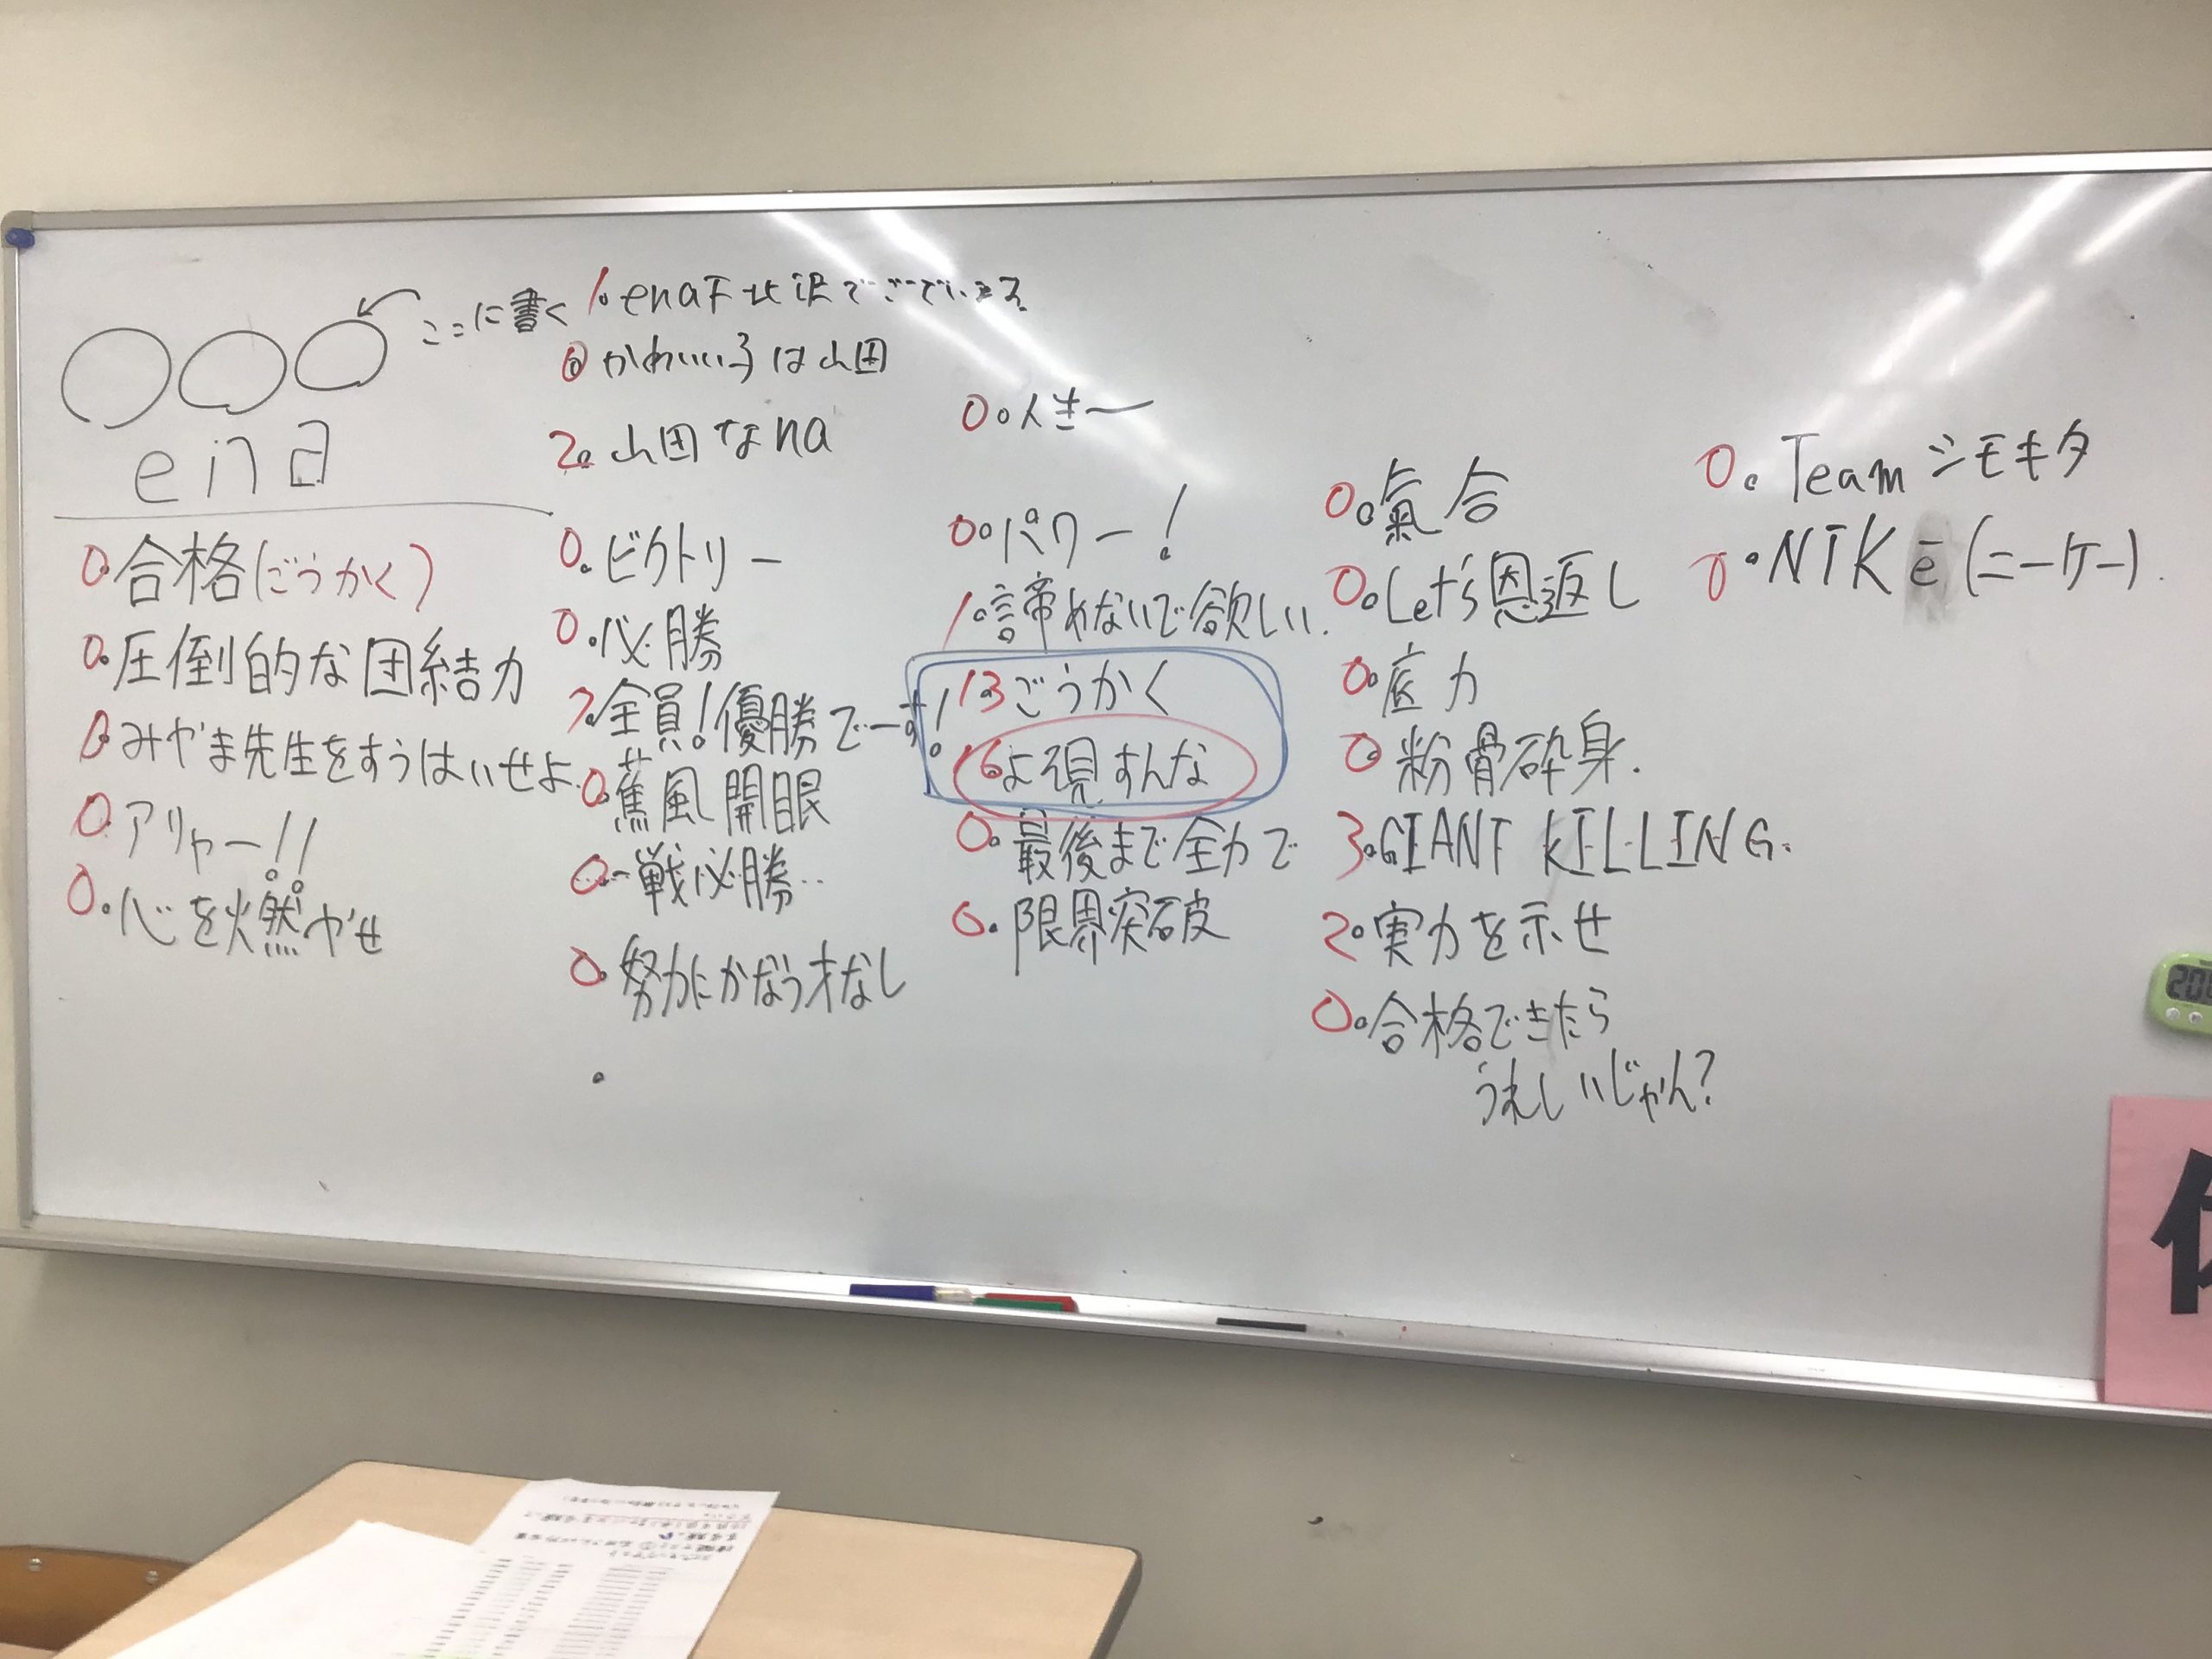 ここに書く
ena
0.合格(ごうかく)
0.圧倒的な団結力
0.みやま先生をすうはいせよ.
0.アリャー!!
0.心を燃やせ
1.ena下北沢でございます
0かわいい子は山田
2.山田なna
0.ビクトリー
0.必勝
7.全員!優勝でーす!
0.薫風開眼
0.一戦必勝
0.努力にかなう才なし
0.人生〜
0.パワー!
1.諦めないで欲しい.
13ごうかく
16よ裑すんな
0.最後まで全力で
0.限界突破
0.氣合
0.Let's恩返し
0.底力
0.粉骨砕身.
3.GIANT KILLING.
2.実力を示せ
0.合格できたら
うれしいじゃん?
0.Teamシモキタ
0.NIKē(ニーケー).